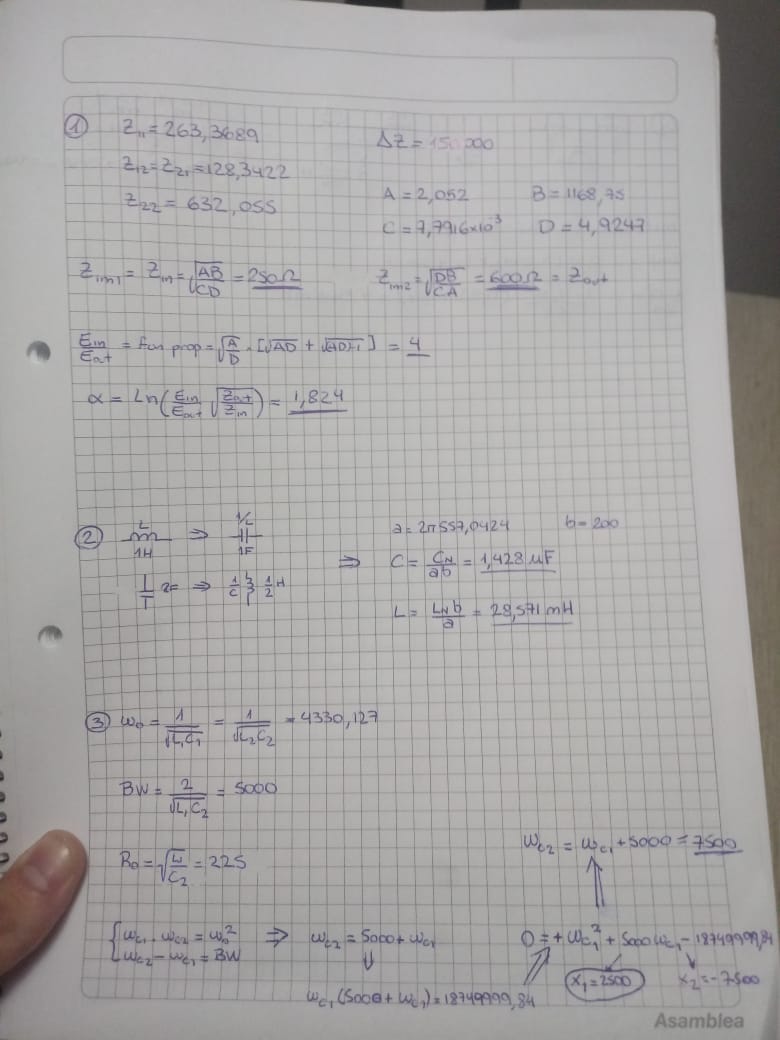 ① Z₁₁ = 263,3689
ΔZ = 150000
Z₁₂ = Z₂₁ = 128,3422
Z₂₂ = 632,055
A = 2,052 B = 1168,75
C = 7,7916x10³ D = 4,9247
Zim1 = Zin = √(AB/CD) = 250Ω
Zim2 = √(DB/CA) = 600Ω = Zout
Ein/Eout = fun prop = √(A/D) · [√AD + √(AD-1)] = 4
α = Ln(Ein/Eout √(Zout/Zin)) = 1,824
② L 1H ⇒ 1/L 1F
2F ⇒ 1/C 1/2 H
a = 2π557,0424 b = 200
⇒ C = CN/ab = 1,428 µF
L = LN b/a = 28,571 mH
③ ω₀ = 1/√(L₁C₁) = 1/√(L₂C₂) = 4330,127
BW = 2/√(L₁C₂) = 5000
R₀ = √(L₁/C₂) = 225
{ωc1 . ωc2 = ω₀²
ωc2 - ωc1 = BW
⇒ ωc2 = 5000 + ωc1
ωc1 (5000 + ωc1) = 18749999,84
0 = + ωc1² + 5000ωc1 - 18749999,84
x₁ = 2500 x₂ = -7500
ωc2 = ωc1 + 5000 = 7500
Asamblea